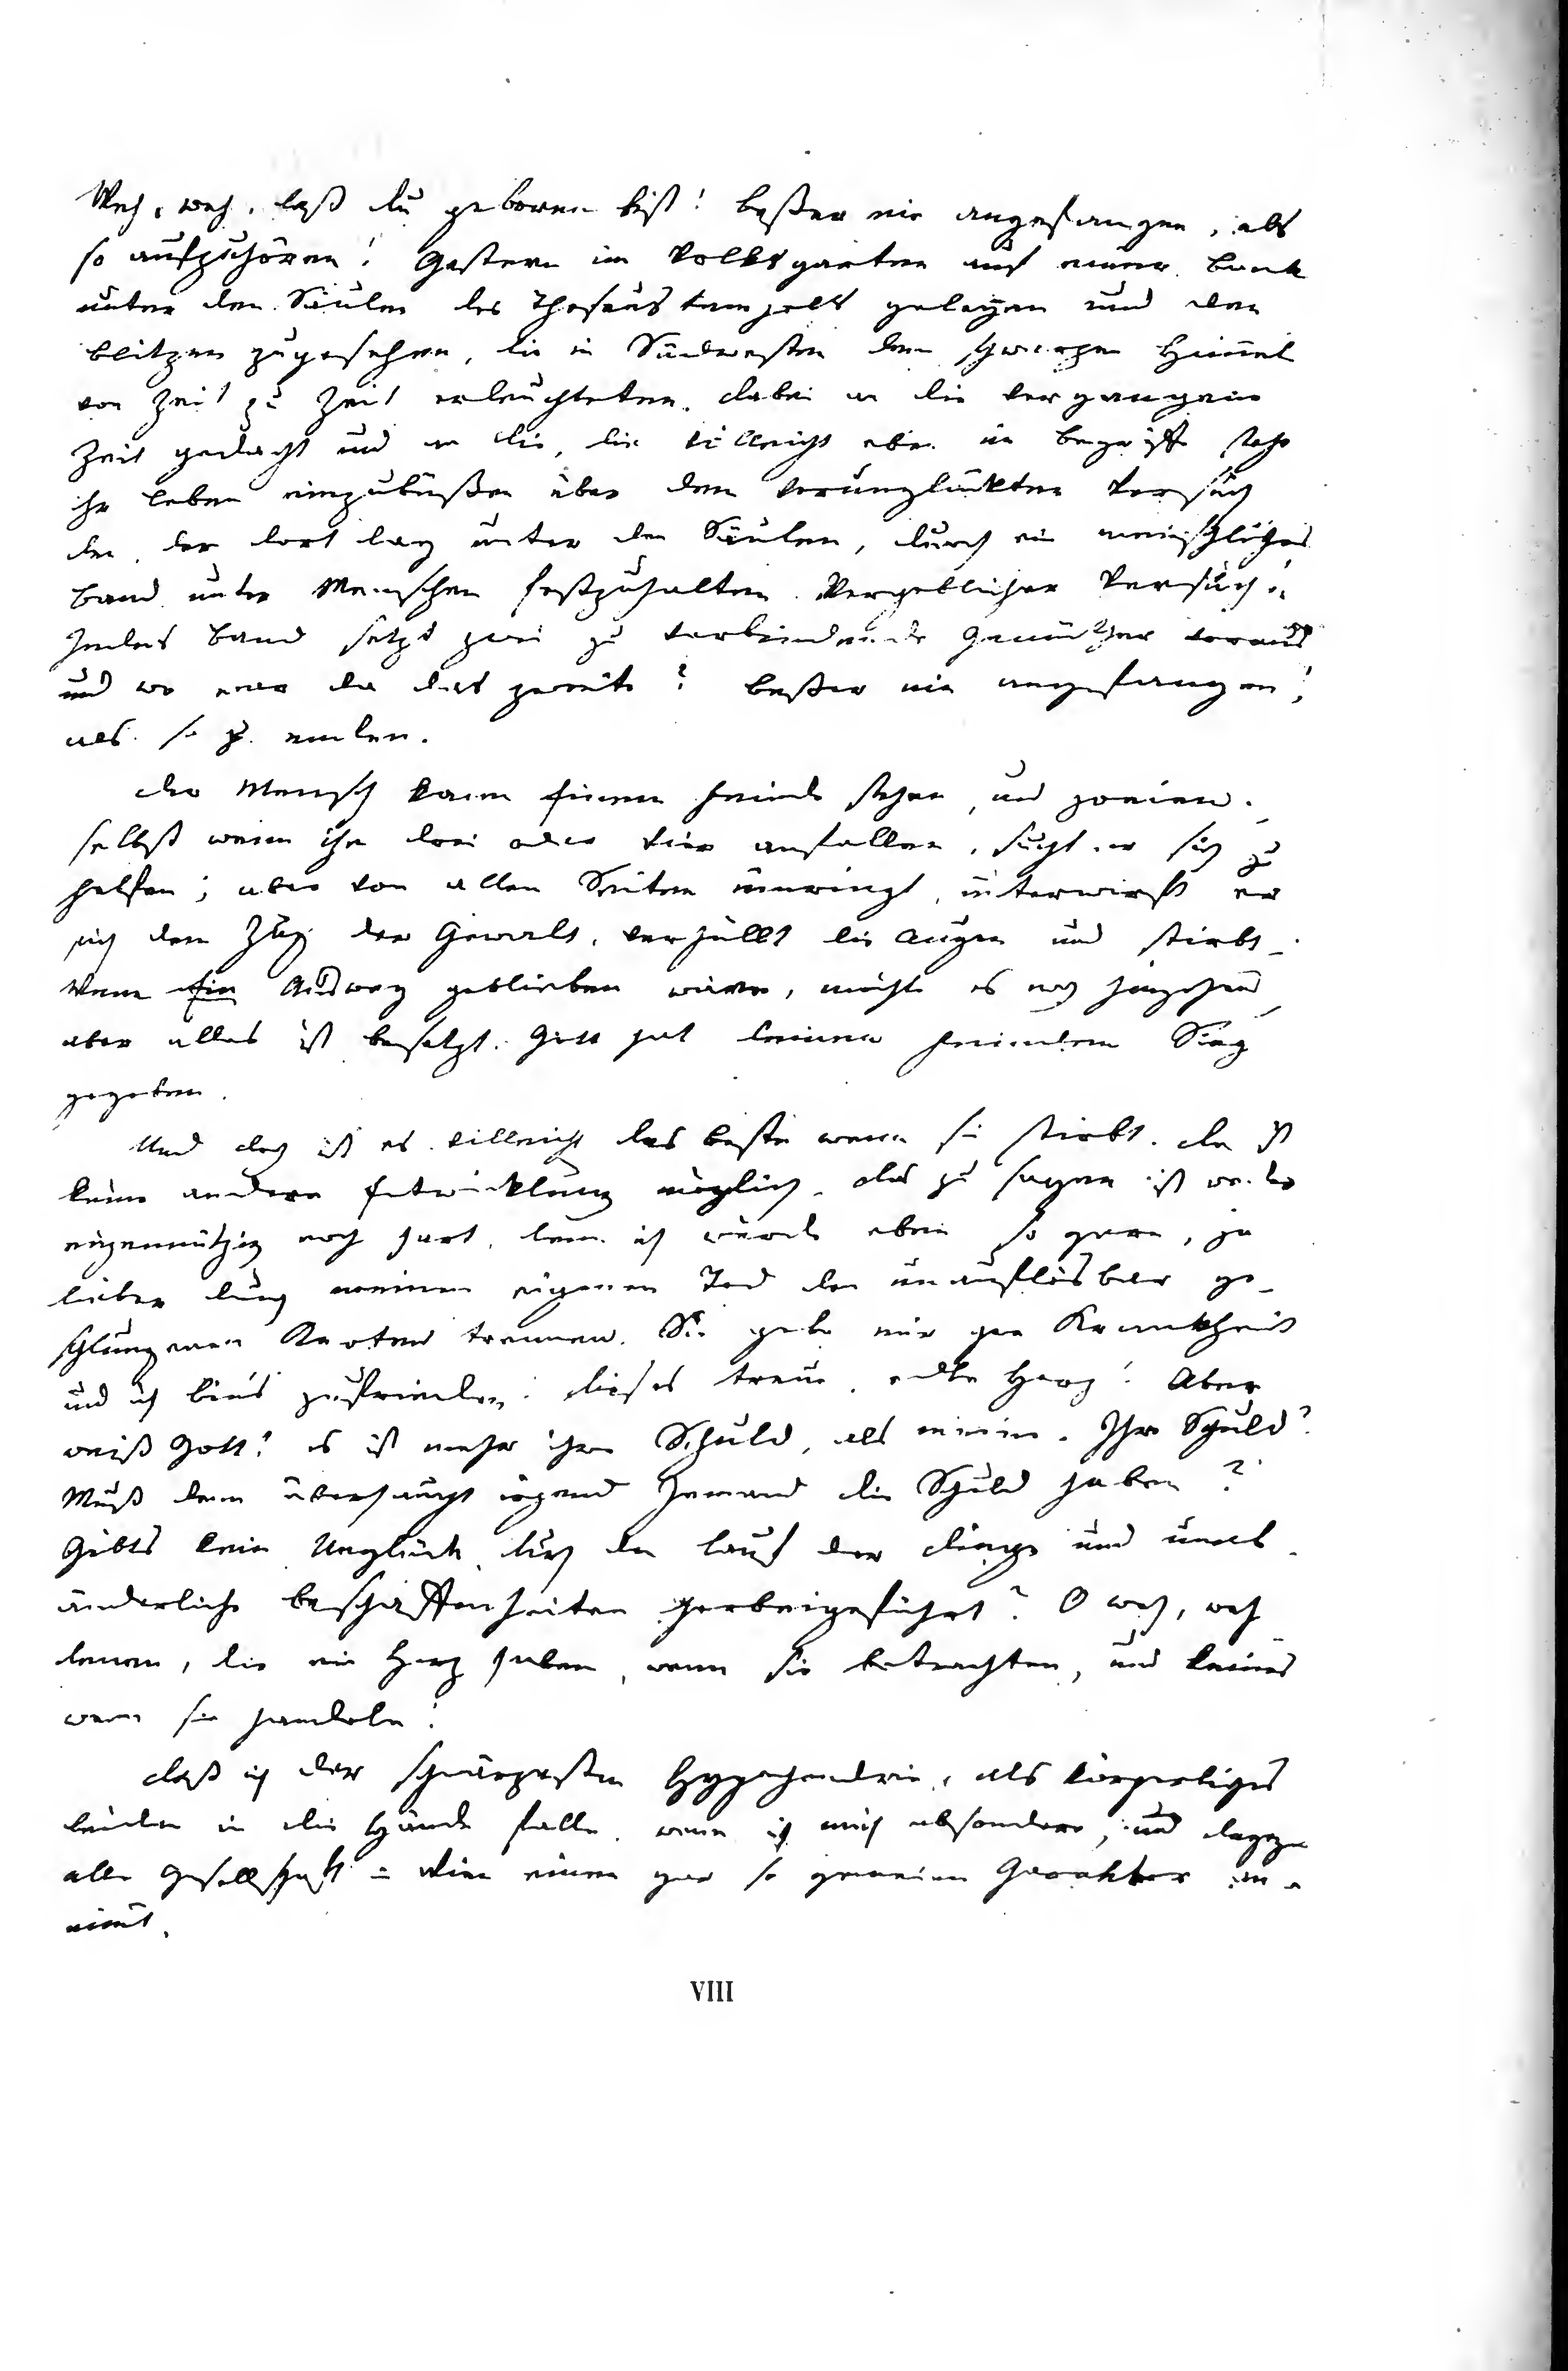 Weh, weh, daß du geboren bist! Beßer nie angefangen, als
so aufzuhören! Gestern im Volksgarten auf einer Bank
unter den Säulen des Theseustempels gelegen und den
Blitzen zugesehen, die in Südwesten den schwarzen Himel
von Zeit zu Zeit erleuchteten. dabei an die vergangene
Zeit gedacht und an die, die villeicht eben im Begriffe steht
ihr Leben einzubüßen über dem verunglückten Versuch
den, der dort lag unter den Säulen, durch ein menschliches
Band unter Menschen festzuhalten. Vergeblicher Versuch!
Jedes Band setzt zwei zu verbindende Gemüther voraus
und wo war da das zweite? Beßer nie angefangen,
als so z. enden.
der Mensch kann Einem Feinde stehen, und zweien.
selbst wenn ihn drei oder vier anfallen, sucht er sich zu
helfen; aber von allen Seiten umringt, unterwirft er
sich dem Zug der Gewalt, verhüllt die Augen und stirbt.
Wenn Ein Ausweg geblieben wäre, möchte es noch hingehend
aber alles ist besetzt. Gott hat deinen Feinden Sieg
gegeben.
Und doch ist es villeicht das beste wenn sie stirbt. da ist
keine andere Entwicklung möglich. das zu sagen ist weder
eigennützig noch hart, denn ich würde eben so gern, ja
lieber durch meinen eigenen Tod den unauflösbar ge-
schlungenen Knoten trennen. Sie gebe mir ihre Krankheit
und ich bins zufrieden. dieses treue, edle Herz! Aber
weiß Gott! es ist mehr ihre Schuld, als meine. Ihre Schuld?
Muß denn überhaupt irgend Jemand die Schuld haben?
Gibts kein Unglück durch den Lauf der dinge und unab-
änderliche Beschaffenheiten herbeigeführt? O weh, weh
denen, die ein Herz haben, wenn sie betrachten, und keines
wenn sie handeln!
daß ich der schwärzesten Hypochondrie, als körperliches
Leiden in die Hände falle, wenn ich mich absondere, und dagegen
alle Gesellschaft in Wien einen gar so gemeinen Charakter an-
nimt.
VIII